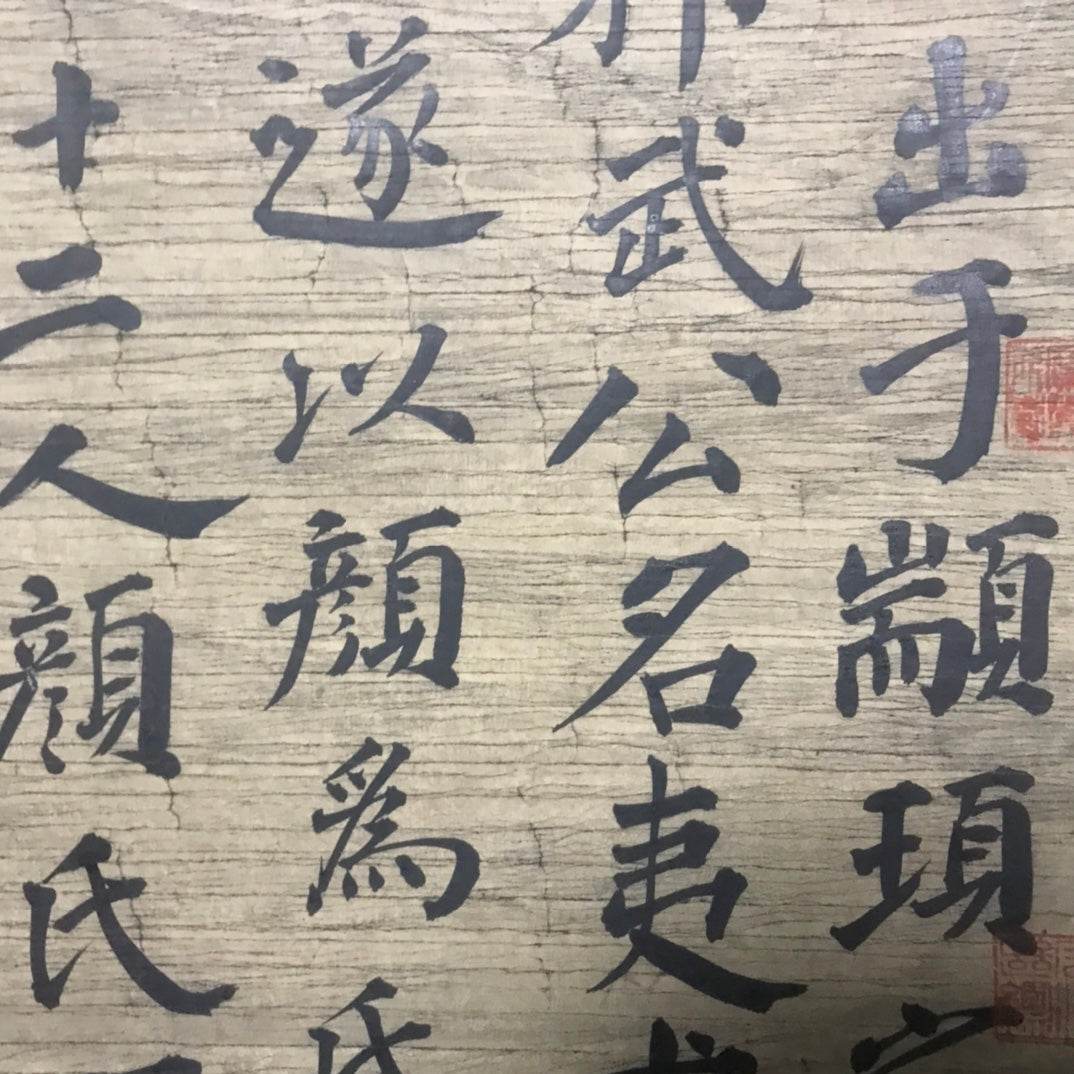 出于顓頊
邾武公名夷
遂以顏爲氏
十二人顏氏